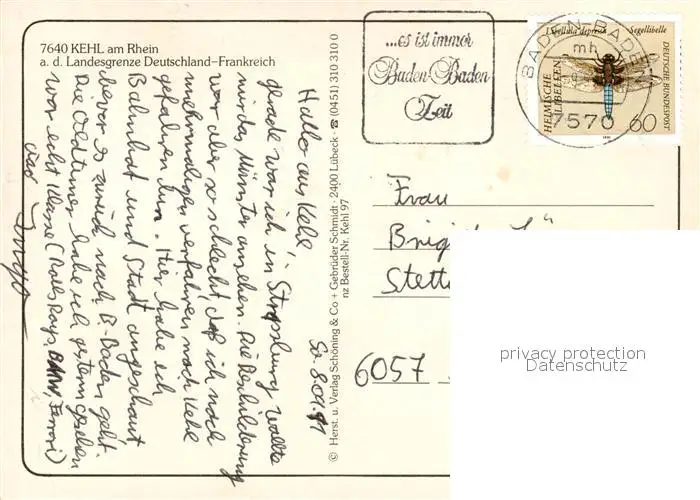 7640 KEHL am Rhein
a. d. Landesgrenze Deutschland–Frankreich
...es ist immer
Baden-Baden
Zeit
BADEN-BADEN
mh
7570
Libellula depressa Segellibelle
HEIMISCHE LIBELLEN
DEUTSCHE BUNDESPOST
60
So. 8.09.91
Hallo aus Kehl,
gerade war ich in Strassburg, wollte
mir das Münster ansehen. Die Beschilderung
war aber so schlecht, daß ich nach
mehrmaligen verfahren nach Kehl
gefahren bin. Hier habe ich
Bahnhof und Stadt angeschaut
bevor es zurück nach B-Baden geht.
Die Oldtimer habe ich gestern gesehen
war echt klasse (Rolls Roys, BMW, Ferrari)
Ingo
© Herst. u. Verlag Schöning & Co + Gebrüder Schmidt · 2400 Lübeck · ☎ (0451) 310 310 0
nz Bestell-Nr. Kehl 97
Frau
Stett
6057
privacy protection
Datenschutz